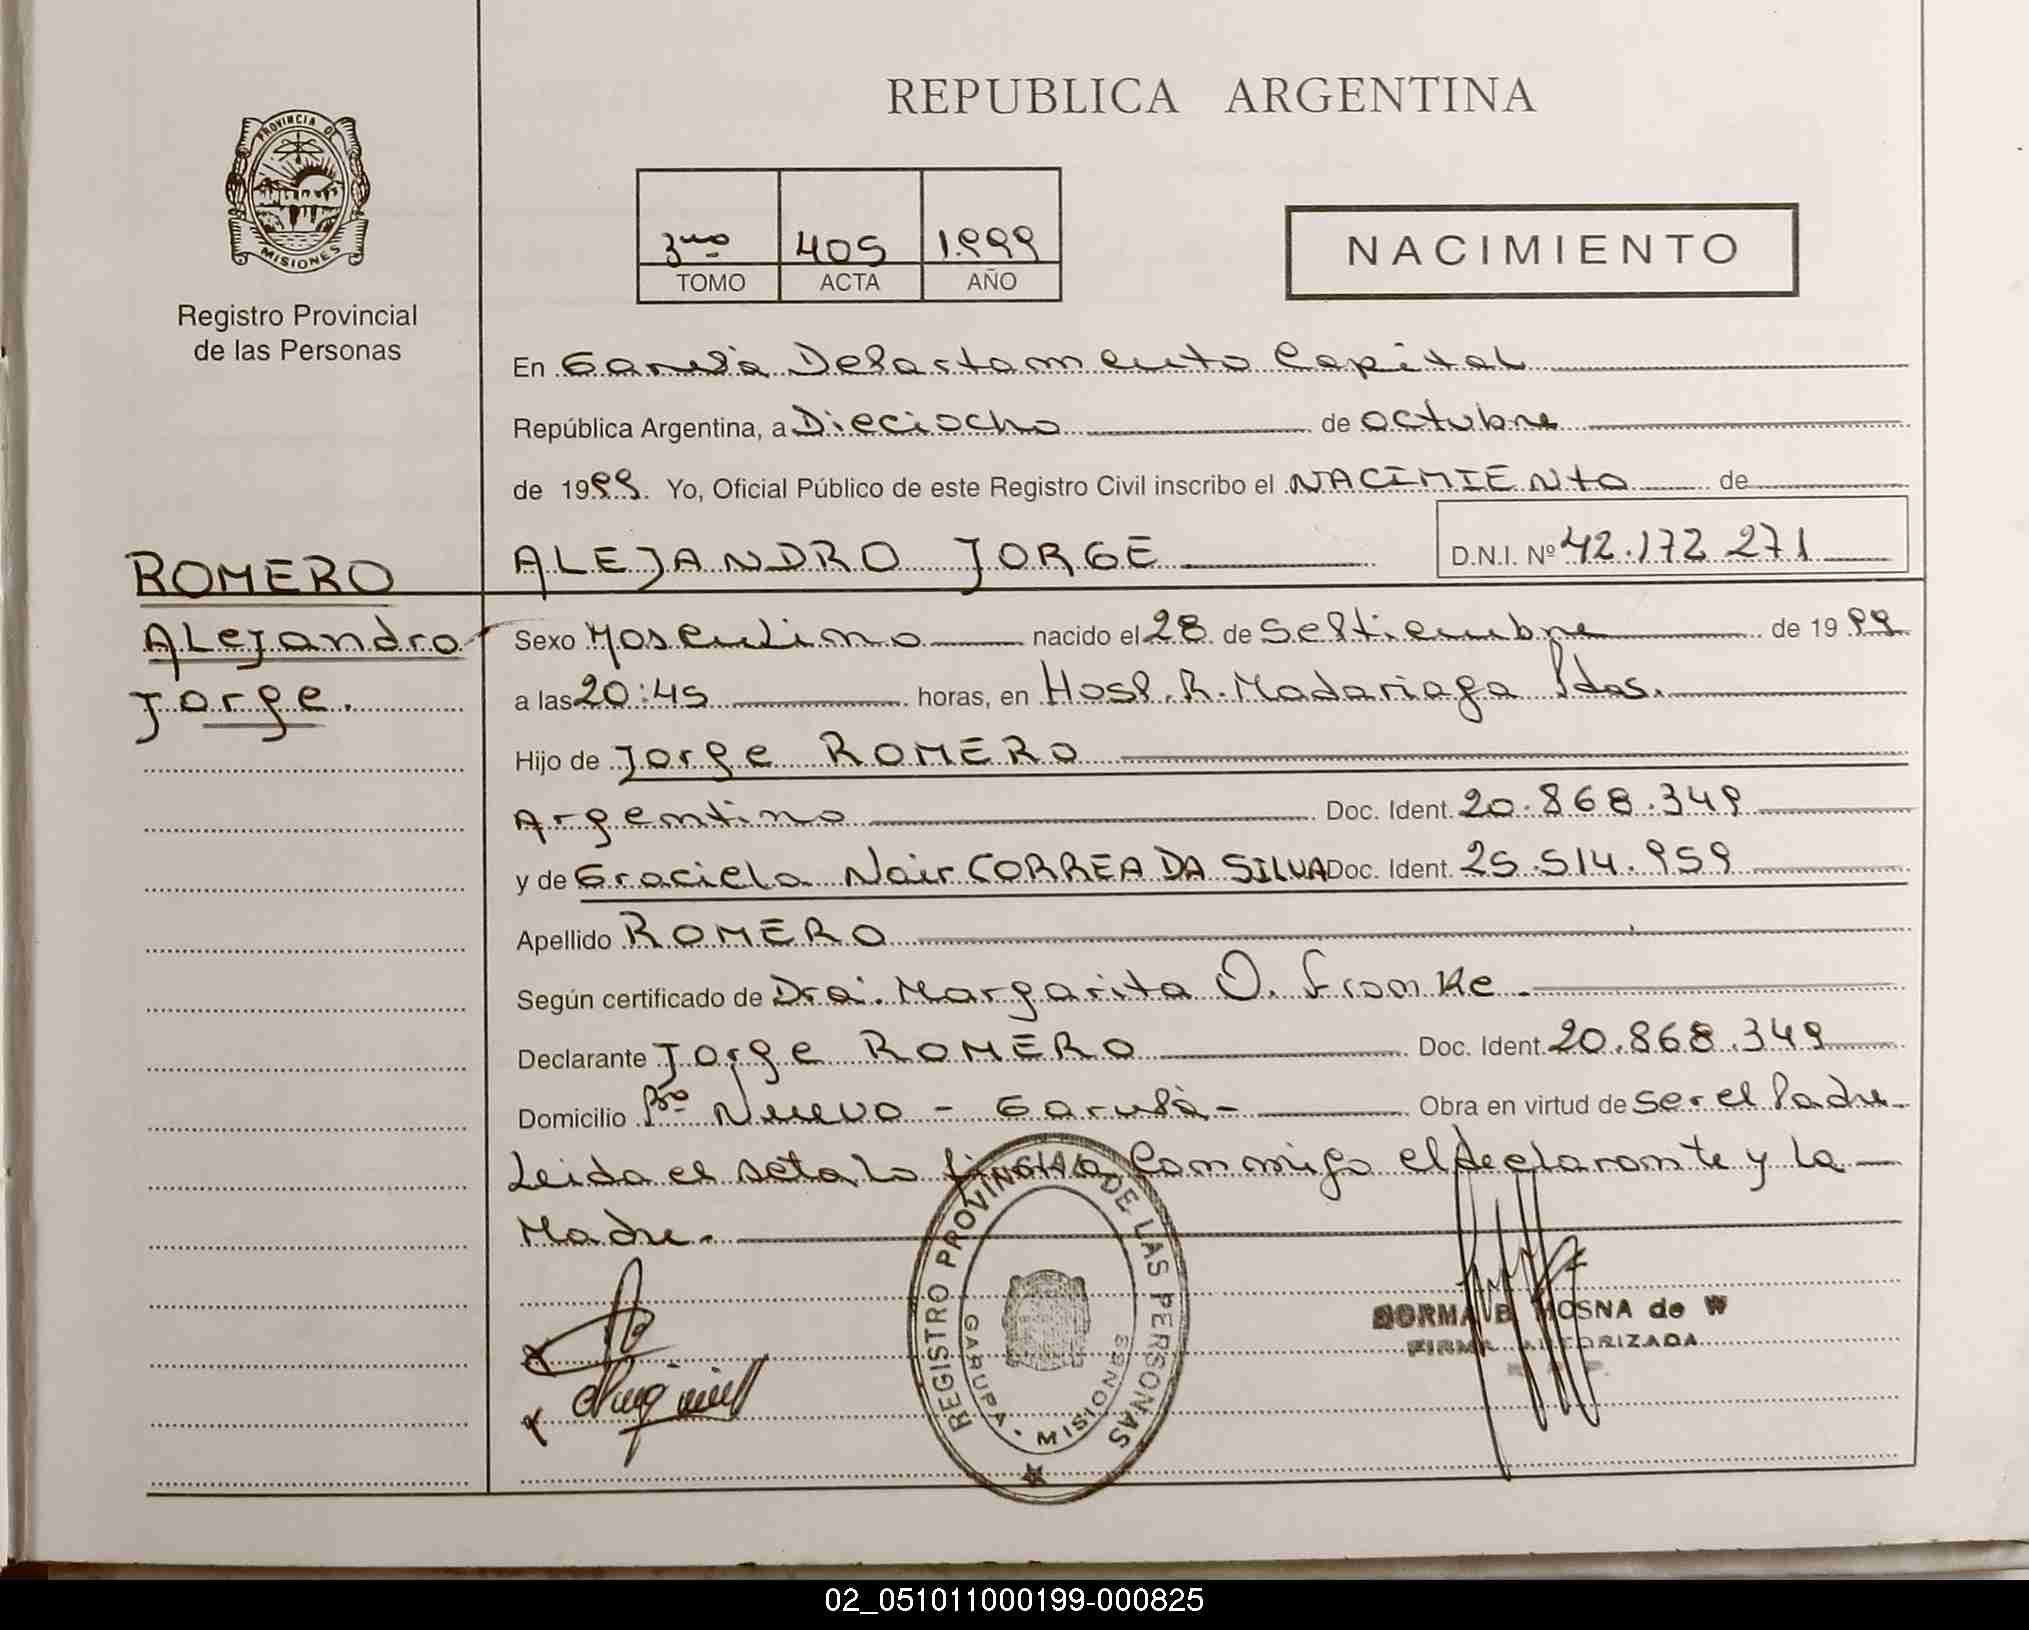 REPUBLICA ARGENTINA
PROVINCIA DE
MISIONES
Registro Provincial
de las Personas
3ro 405 1.999
TOMO ACTA AÑO
NACIMIENTO
En Garupá Departamento Capital
República Argentina, a Dieciocho de octubre
de 1999. Yo, Oficial Público de este Registro Civil inscribo el NACIMIENto de
ROMERO
Alejandro
Jorge.
ALEJANDRO JORGE D.N.I. Nº 42.172 271
Sexo Masculino nacido el 28 de Septiembre de 1999
a las 20:45 horas, en Hosp. R. Madariaga Pdas.
Hijo de Jorge ROMERO
Argentino Doc. Ident. 20.868.349
y de Graciela Nair CORREA DA SILVA Doc. Ident. 25.514.959
Apellido ROMERO
Según certificado de Dra. Margarita O. Fromke.
Declarante Jorge ROMERO Doc. Ident. 20.868.349
Domicilio Bo Nuevo - Garupá - Obra en virtud de ser el Padre.
Leida el acta la firma Conmigo el declarante y la
Madre.
REGISTRO PROVINCIAL DE LAS PERSONAS
GARUPA · MISIONES
NORMA B. HOSNA de W
FIRMA AUTORIZADA
02_051011000199-000825